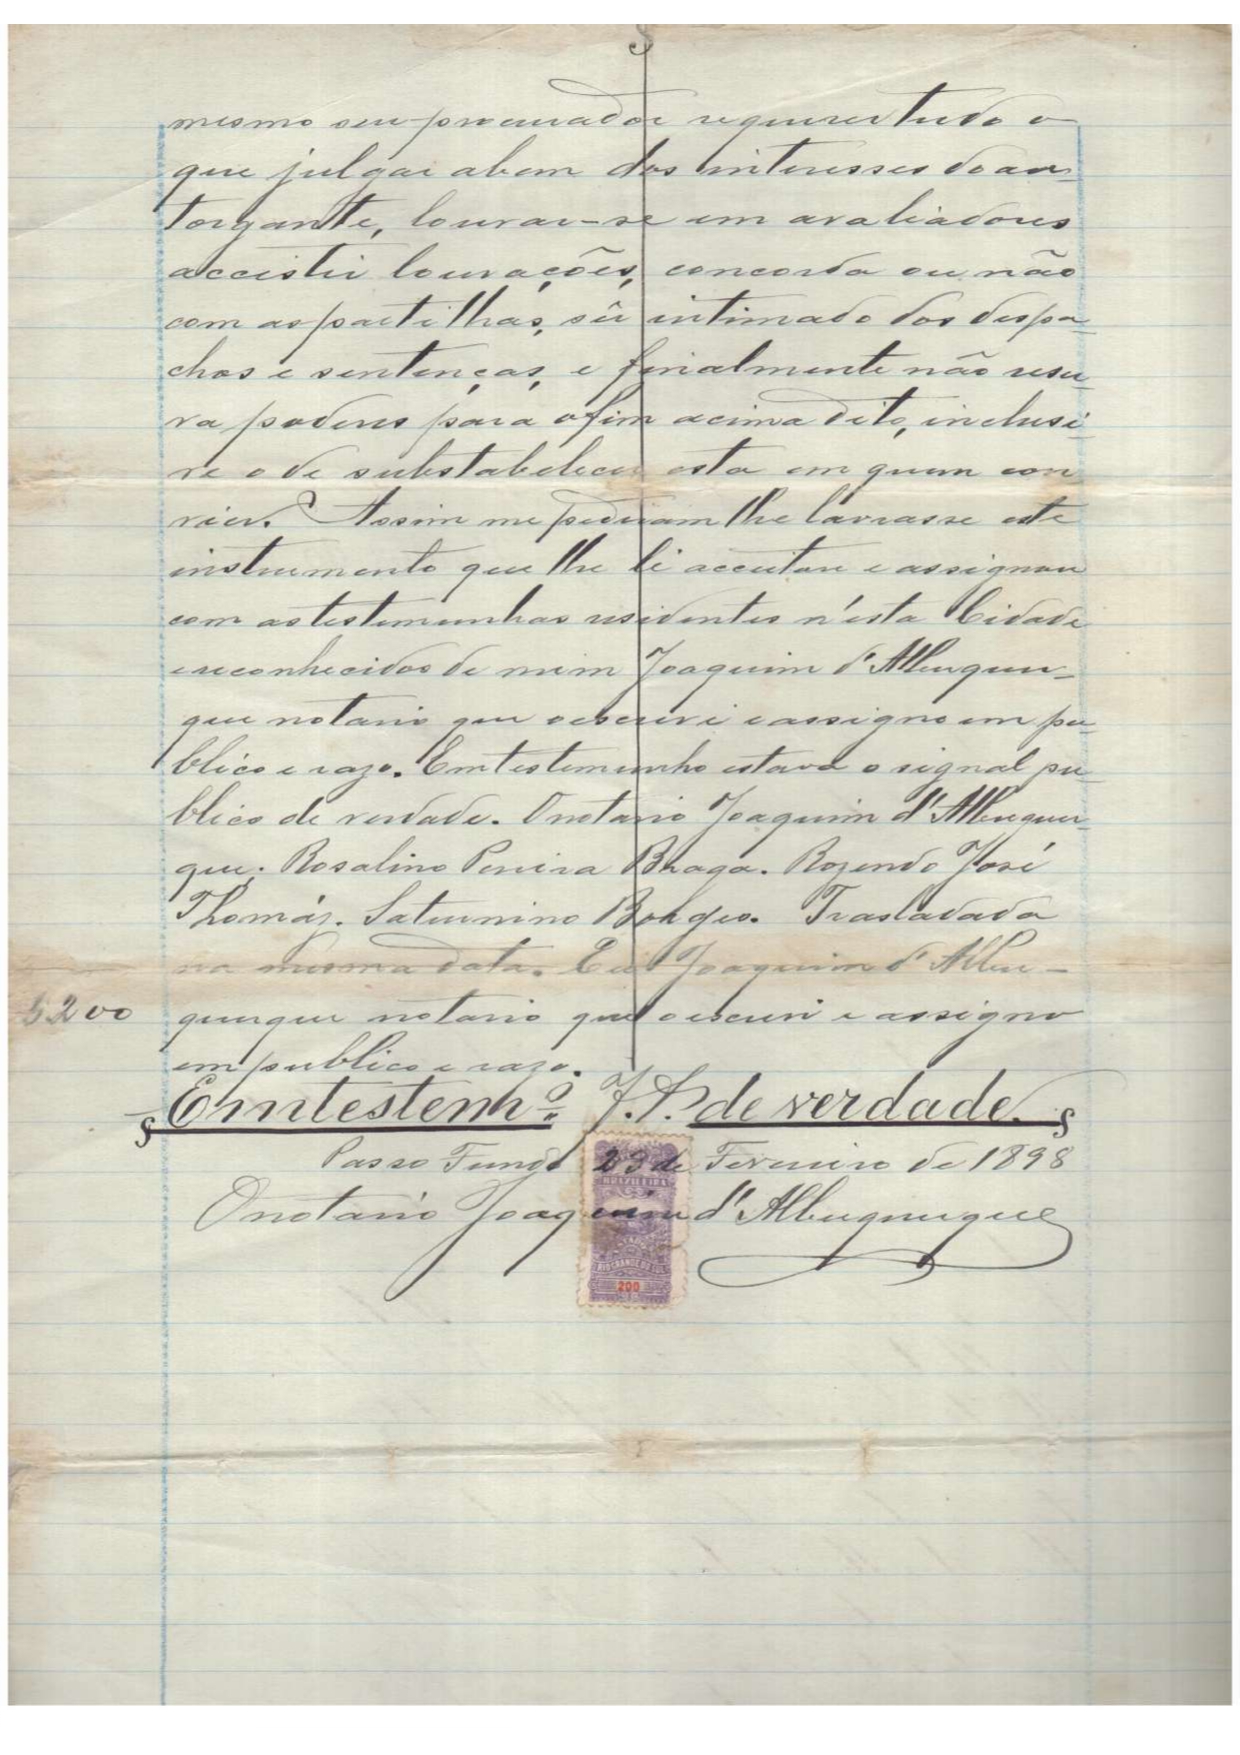 mesmo seu procurador requerer tudo o
que julgar abem dos interesses do au-
torgante, louvar-se em avaliadores
accistir louvações, concorda ou não
com as partilhas, sêr intimado dos despa-
chos e sentenças, e finalmente não reser-
va poderes para o fim acima dito, inclusi-
ve o de substabelecer esta em quem con
vier. Assim me pediram lhe lavrasse este
instrumento que lhe li acceitou e assignou
com as testemunhas residentes n'esta Cidade
e reconhecidos de mim Joaquim d'Albuquer-
que notario que o escrevi e assigno em pu-
blico e razo. Em testemunho estava o signal pu-
blico de verdade. O notario Joaquim d'Albuquer-
que. Rosalino Pereira Braga. Rozendo José
Thomáz. Saturnino Borges. Trasladada
na mesma data. Eu Joaquim d'Albu-
5200 querque notario que o escrevi e assigno
em publico e razo.
Em testemº J.A. de verdade.
Passo Fundo 23 de Fevereiro de 1898
O notario Joaquim d'Albuquerque
BRAZILEIRA
RIO GRANDE DO SUL
200